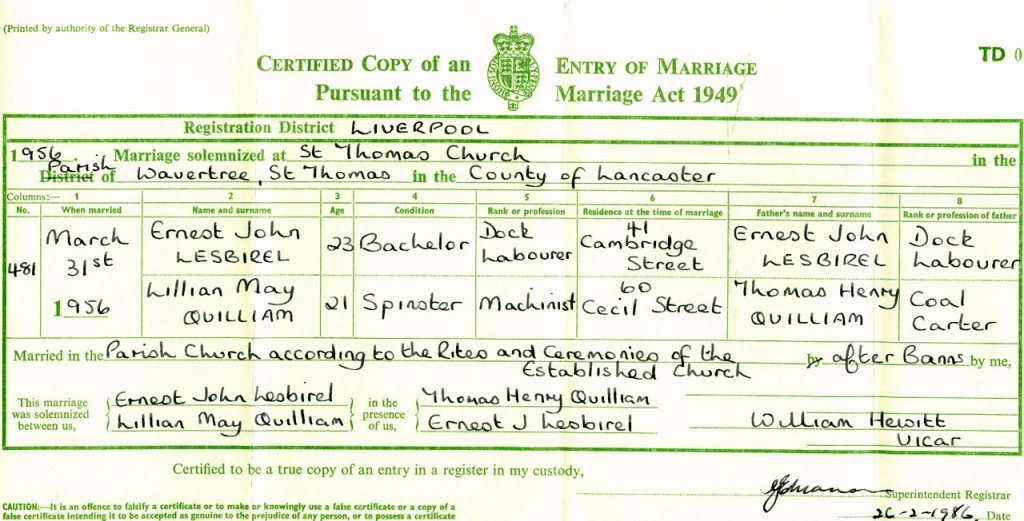 (Printed by authority of the Registrar General)
CERTIFIED COPY OF AN ENTRY OF MARRIAGE
Pursuant to the Marriage Act 1949
TD 0
Registration District LIVERPOOL
1956. Marriage solemnized at St Thomas Church in the
Parish
District of Wavertree, St Thomas in the County of Lancaster
Columns:— 1 2 3 4 5 6 7 8
No. When married Name and surname Age Condition Rank or profession Residence at the time of marriage Father's name and surname Rank or profession of father
481 March 31st 1956 Ernest John LESBIREL 23 Bachelor Dock Labourer 41 Cambridge Street Ernest John LESBIREL Dock Labourer
Lillian May QUILLIAM 21 Spinster Machinist 60 Cecil Street Thomas Henry QUILLIAM Coal Carter
Married in the Parish Church according to the Rites and Ceremonies of the Established Church by after Banns by me,
This marriage was solemnized between us, Ernest John Lesbirel Lillian May Quilliam in the presence of us, Thomas Henry Quilliam Ernest J Lesbirel William Hewitt Vicar
Certified to be a true copy of an entry in a register in my custody,
Superintendent Registrar
26-2-1986, Date
CAUTION:—It is an offence to falsify a certificate or to make or knowingly use a false certificate or a copy of a
false certificate intending it to be accepted as genuine to the prejudice of any person, or to possess a certificate